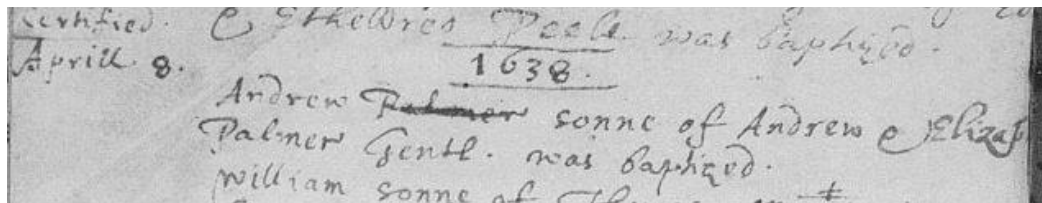 Certified. & Etheldred Peele was baptized.
1638.
Aprill. 8.
Andrew Palmer sonne of Andrew & Elizab
Palmer Gentl. was baptized.
William sonne of